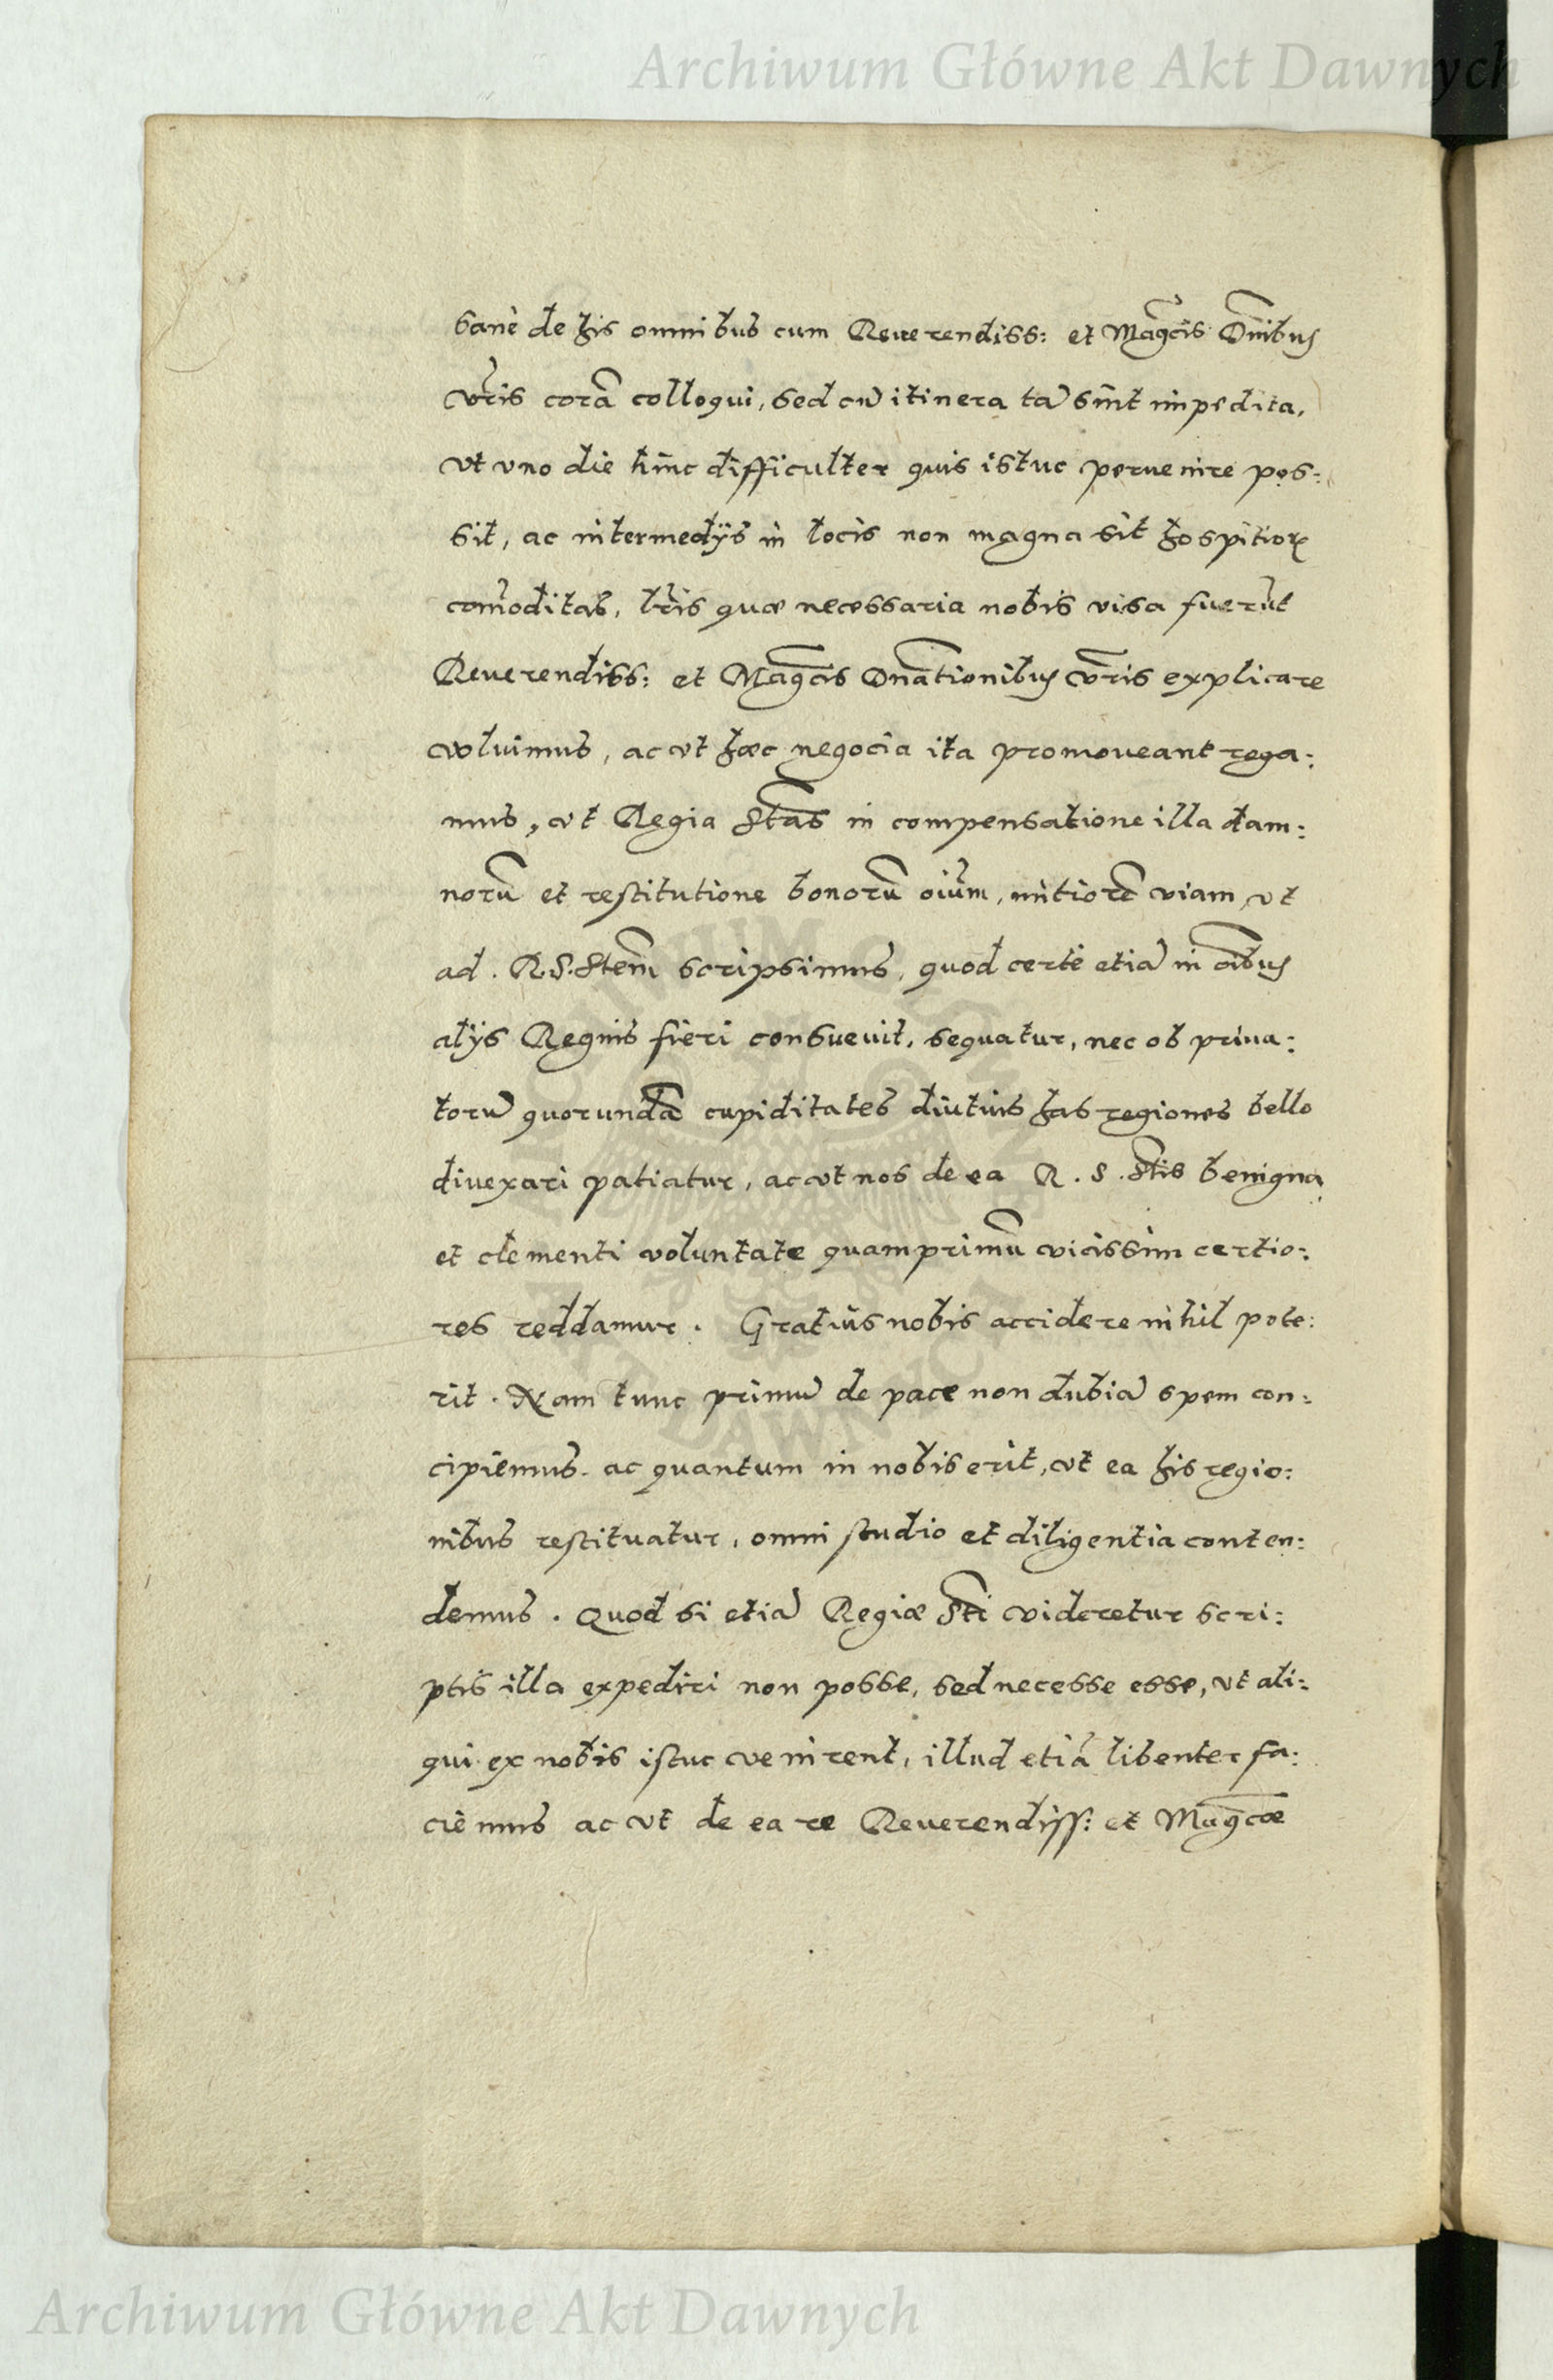 Archiwum Główne Akt Dawnych
sanè de his omnibus cum Reuerendiss: et Mag̃cis Dnĩbus
vr̃is corã colloqui, sed cũ itinera tã sint impedita,
vt vno die hinc difficulter quis istuc peruenire pos:
sit, ac intermedijs in locis non magna sit hospitiorꝝ
com̃oditas, lr̃is quæ necessaria nobis visa fuerũt
Reuerendiss: et Mag̃cis Dnãtionibus vr̃is explicare
voluimus, ac vt hæc negocia ita promoueant roga:
mus, vt Regia Stãs in compensatione illa dam:
norũ et restitutione bonorũ oiũm, mitiorẽ viam, vt
ad. R.S.Stem̃ scripsimus, quod certè etiã in oĩbus
alijs Regnis fieri consueuit, sequatur, nec ob priua:
torũ quorundã cupiditates diutius has regiones bello
diuexari patiatur, ac vt nos de ea R.S.Stĩs benigna
et clementi voluntate quamprimũ vicissim certio:
res reddamur. Gratius nobis accidere nihil pote:
rit. Nam tunc primũ de pace non dubiã spem con:
cipiemus. ac quantum in nobis erit, vt ea his regio:
nibus restituatur, omni studio et diligentia conten:
demus. Quod si etiã Regiæ Stĩ videretur scri:
ptis illa expediri non posse, sed necesse esse, vt ali:
qui ex nobis istuc venirent, illud etiã libenter fa:
ciemus ac vt de ea re Reuerendiss: et Mag̃cæ
Archiwum Główne Akt Dawnych